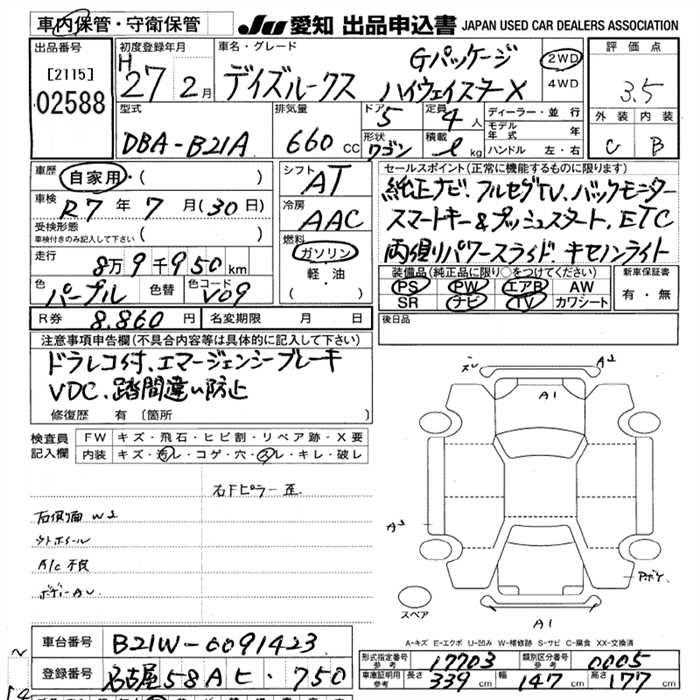 車内保管・守衛保管
JU 愛知 出品申込書 JAPAN USED CAR DEALERS ASSOCIATION
出品番号
[2115]
02588
初度登録年月
H
27 2月
車名・グレード
Gパッケージ
デイズルークス ハイウェイスターX
2WD
4WD
評価点
3.5
外装 内装
C B
型式
DBA-B21A
排気量
660 cc
ドア
5
形状
ワゴン
定員
4人
積載
kg
ディーラー・並行
モデル年式 年
ハンドル 左・右
車歴
自家用・( )
車検
R7年 7月(30日)
受検形態
車検付きのみ記入して下さい ( )
走行
8万9千950km
色
パープル
色替
色コード
V09
シフト
AT
冷房
AAC
燃料
ガソリン
軽・油
( )
セールスポイント(正常に機能するものに限ります)
純正ナビ、フルセグTV、バックモニター
スマートキー&プッシュスタート、ETC
両側パワースライド、キセノンライト
装備品(純正品に限り○をつけてください)
PS PW エアB AW
SR ナビ TV カワシート
新車保証書
有・無
R券
8.860円
名変期限 月 日
後日品
注意事項申告欄(不具合内容等は具体的に記入して下さい)
ドラレコ付、エマージェンシーブレーキ
VDC、踏間違い防止
修復歴 有〔箇所
検査員
記入欄
FW キズ・飛石・ヒビ割・リペア跡・X要
内装 キズ・汚レ・コゲ・穴・スレ・キレ・破レ
右Fピラー歪
右側面 W2
A/C不良
A2
A1
A2
A1
スペア
A-キズ E-エクボ U-凹み W-補修跡 S-サビ C-腐食 XX-交換済
車台番号
B21W-0091423
登録番号
名古屋58A ヒ・750
形式指定番号
参考
17703
類別区分番号
参考
0005
車庫証明用
参考
長さ
339 cm
幅
147 cm
高さ
177 cm